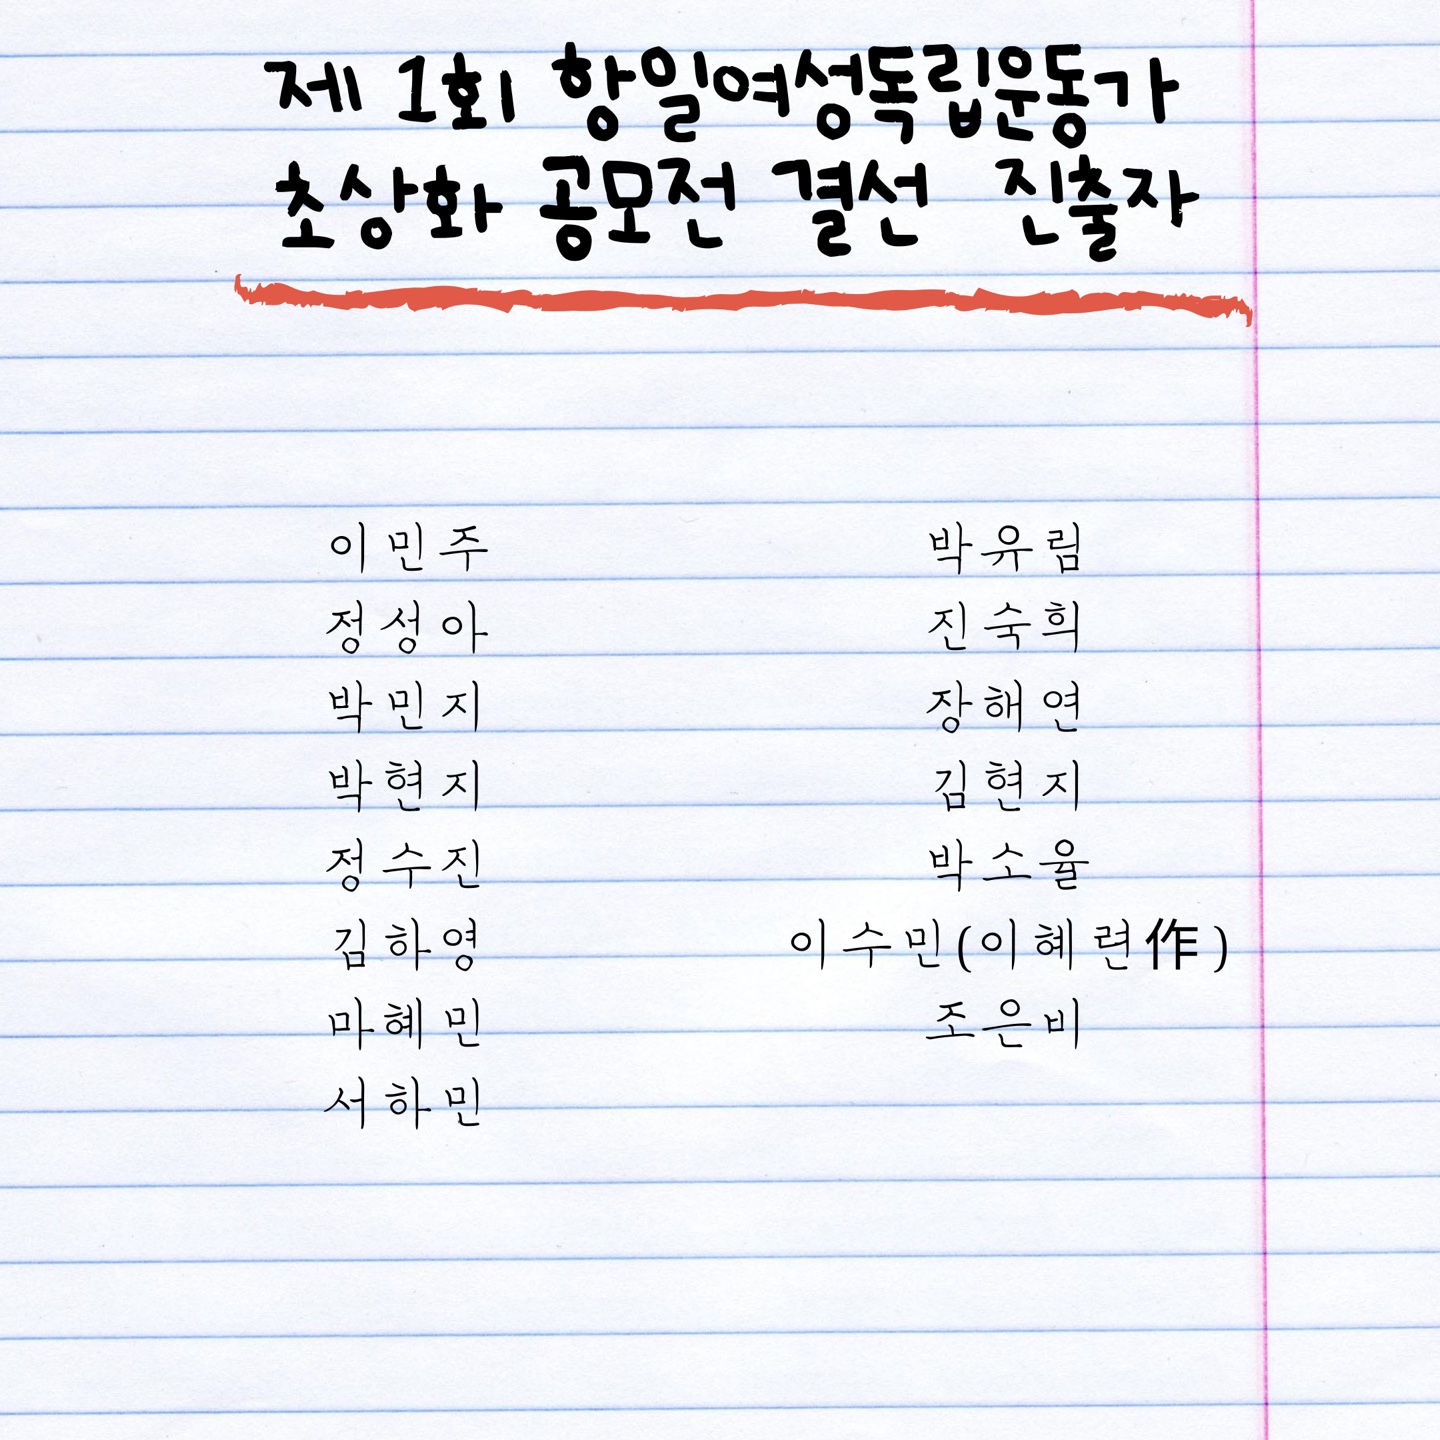 제 1회 항일여성독립운동가
초상화 공모전 결선 진출자
이민주
정성아
박민지
박현지
정수진
김하영
마혜민
서하민
박유림
진숙희
장해연
김현지
박소율
이수민(이혜련作)
조은비